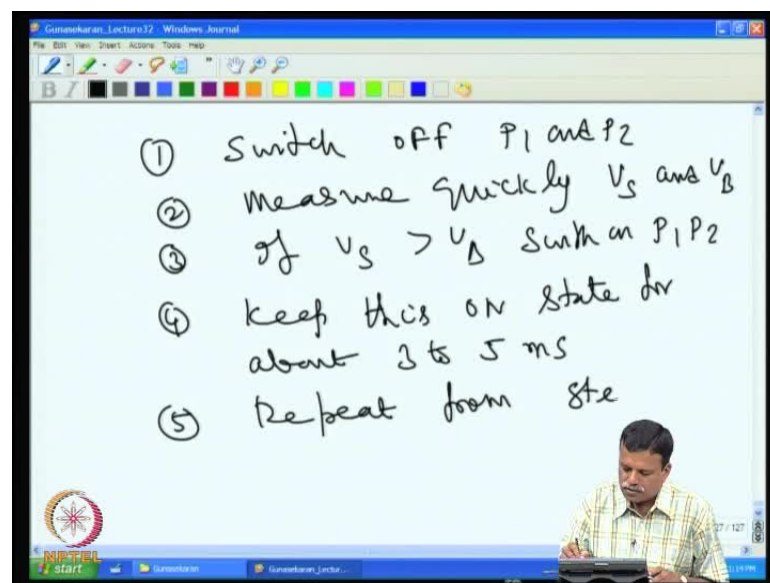 Gunasekaran_Lecture32 - Windows Journal
File Edit View Insert Actions Tools Help
B I
① Switch off P1 and P2
② measure quickly VS and VB
③ If VS > VB Switch on P1 P2
④ keep this ON state for
about 3 to 5 ms
⑤ Repeat from ste
27 / 127
NPTEL
start Gunasekaran Gunasekaran_Lectur...
1:19 PM